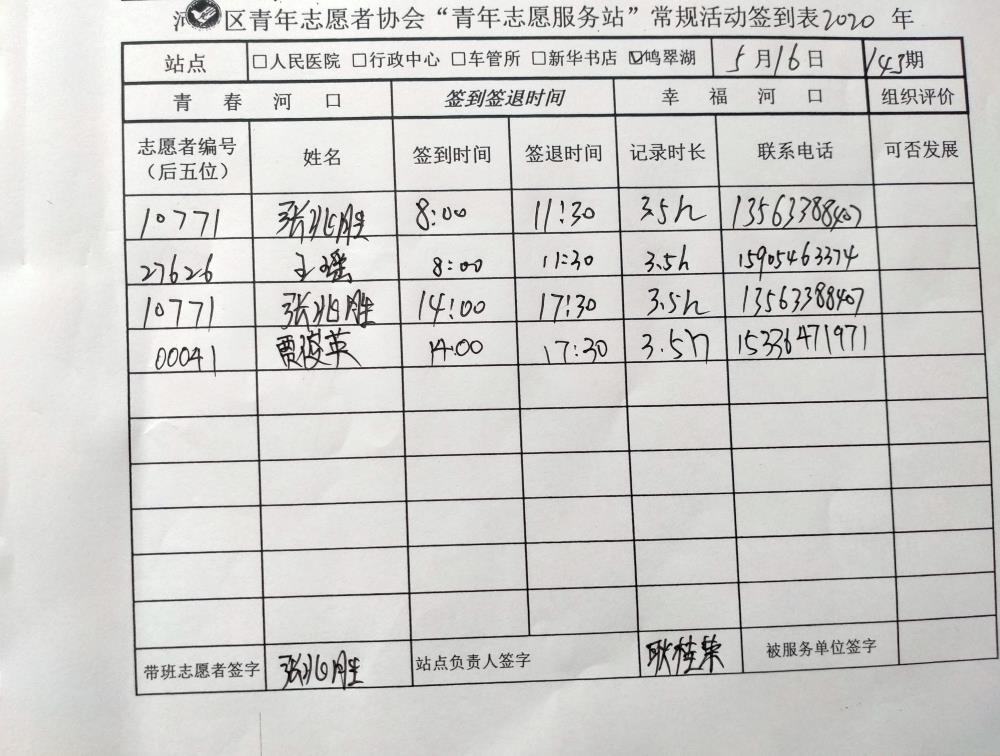 区青年志愿者协会“青年志愿服务站”常规活动签到表2020 年
站点 □人民医院 □行政中心 □车管所 □新华书店 ☑鸣翠湖 5月16日 143期
青 春 河 口 签到签退时间 幸 福 河 口 组织评价
志愿者编号
（后五位） 姓名 签到时间 签退时间 记录时长 联系电话 可否发展
10771 张兆胜 8:00 11:30 3.5h 13563388407
27626 王瑶 8:00 11:30 3.5h 15905463374
10771 张兆胜 14:00 17:30 3.5h 13563388407
00041 贾俊英 14:00 17:30 3.5h 15336471971
带班志愿者签字 张兆胜 站点负责人签字 耿桂荣 被服务单位签字